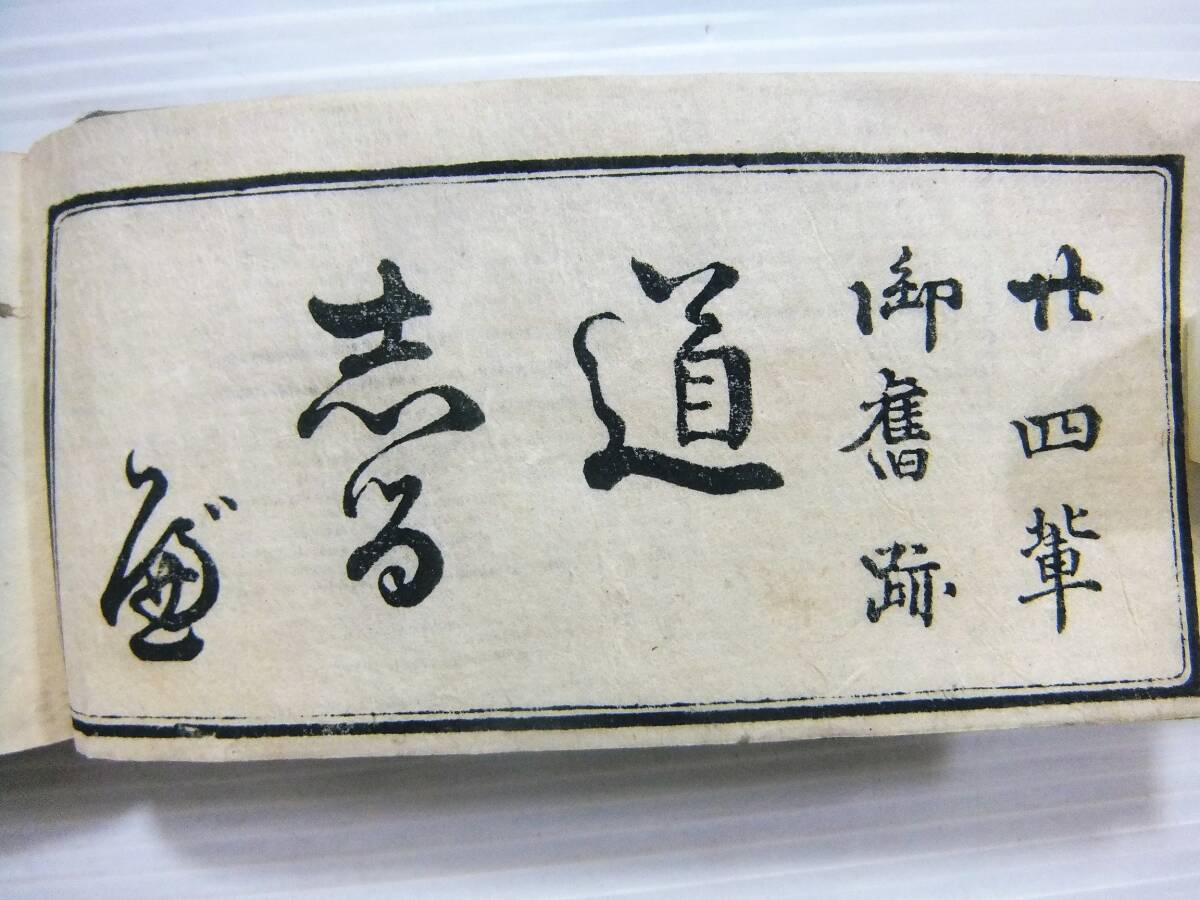 廿四輩
御舊跡
道
志る
べ